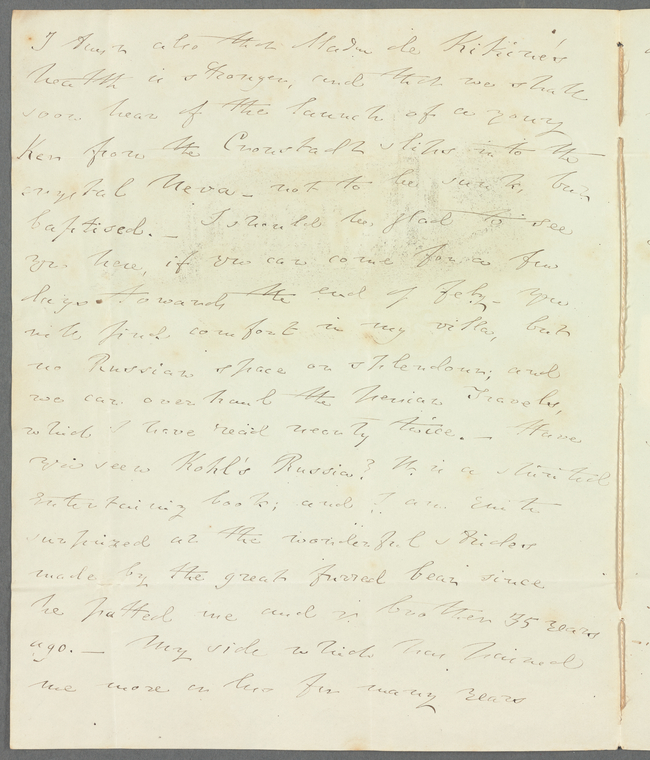 I hope also that Madm de Kikine's
health is stronger, and that we shall
soon hear of the launch of a young
Ken from the Cronstadt slips into the
crystal Neva - not to be sunk, but
baptised. - I should be glad to see
you here, if you can come for a few
days towards the end of Feby - you
will find comfort in my villa, but
no Russian space or splendour; and
we can overhaul the Travels,
which I have read nearly twice. - Have
you seen Kohl's Russia? It is a
entertaining book; and I am quite
surprized at the wonderful strides
made by the great furred bear since
he patted me and brother 35 years
ago. - My side which has pained
me more or less for many years